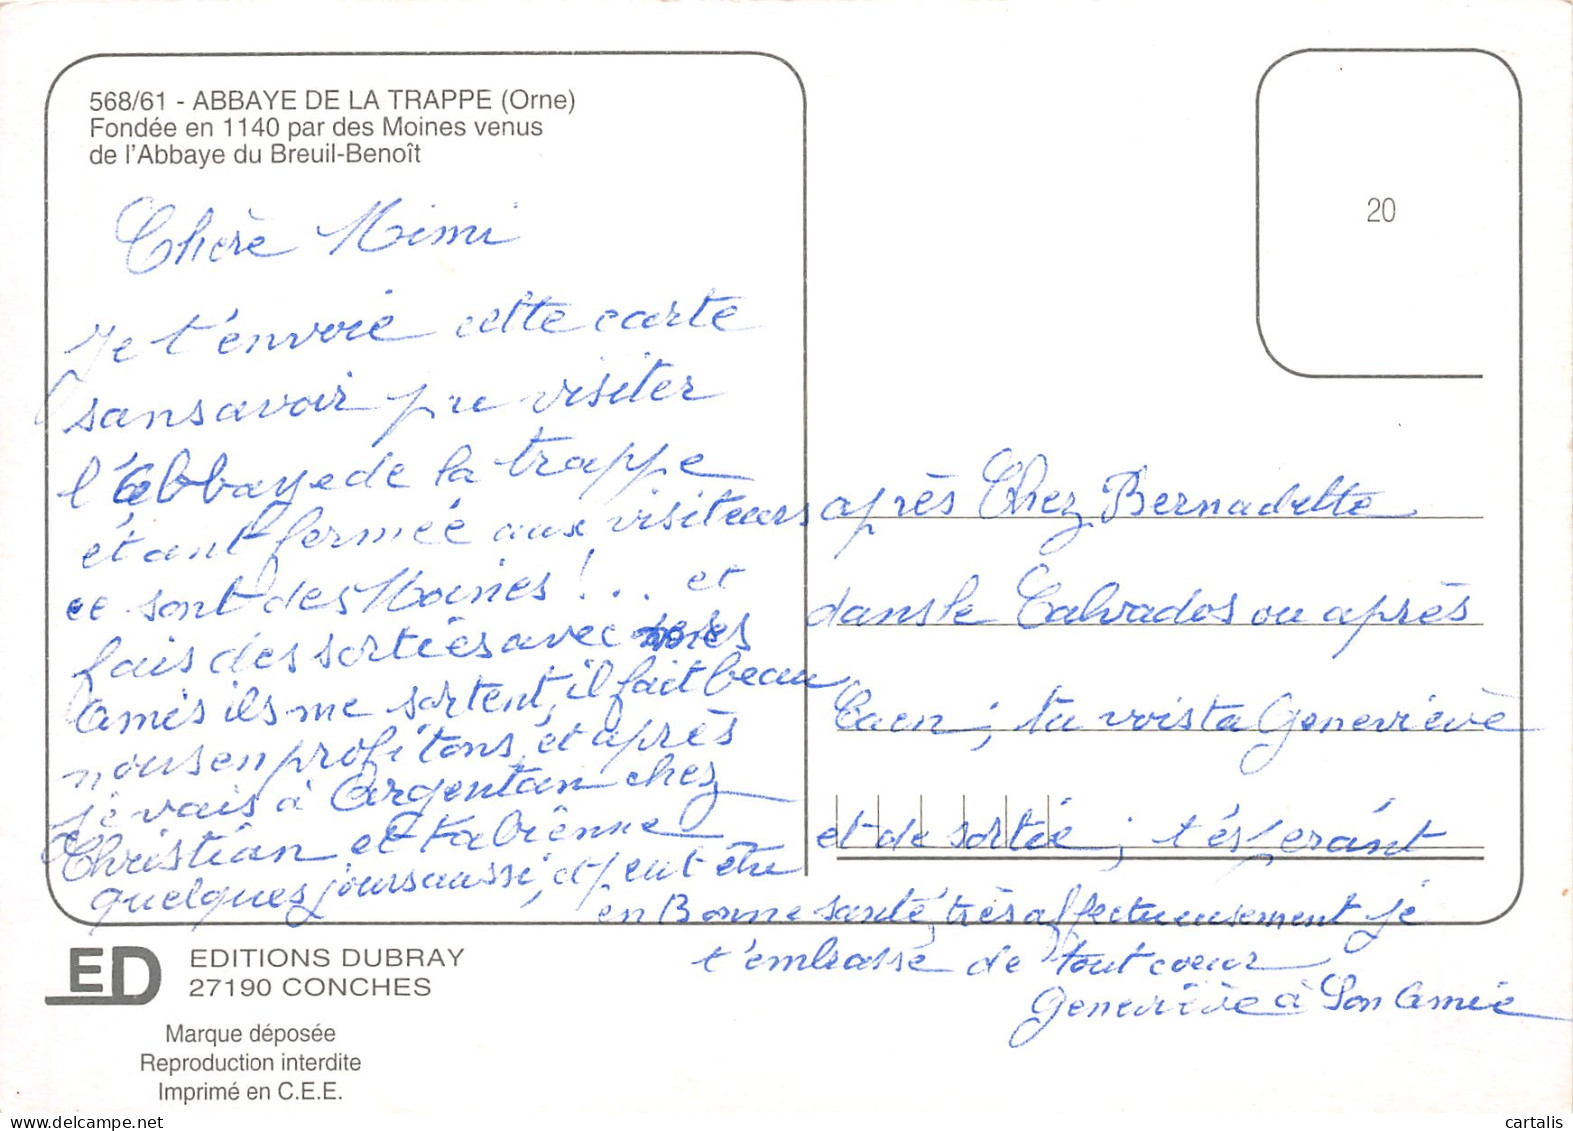 568/61 - ABBAYE DE LA TRAPPE (Orne)
Fondée en 1140 par des Moines venus
de l'Abbaye du Breuil-Benoît
20
Chère Mimi
Je t'envoie cette carte
sans avoir pu visiter
l'Abbaye de la trappe
étant fermée aux visiteurs
ce sont des Moines ! ... et
fais des sorties avec mes
Amis ils me sortent, il fait beau
nous en profitons, et après
je vais à Argentan chez
Christian et Fabienne
quelques jours aussi, et peut être
après Chez Bernadette
dans le Calvados ou après
Caen ; tu vois ta Geneviève
et de sortie ; t'espérant
en Bonne santé, très affectueusement je
t'embrasse de tout coeur
Geneviève à Son Amie
ED
EDITIONS DUBRAY
27190 CONCHES
Marque déposée
Reproduction interdite
Imprimé en C.E.E.
www.cartalis.com